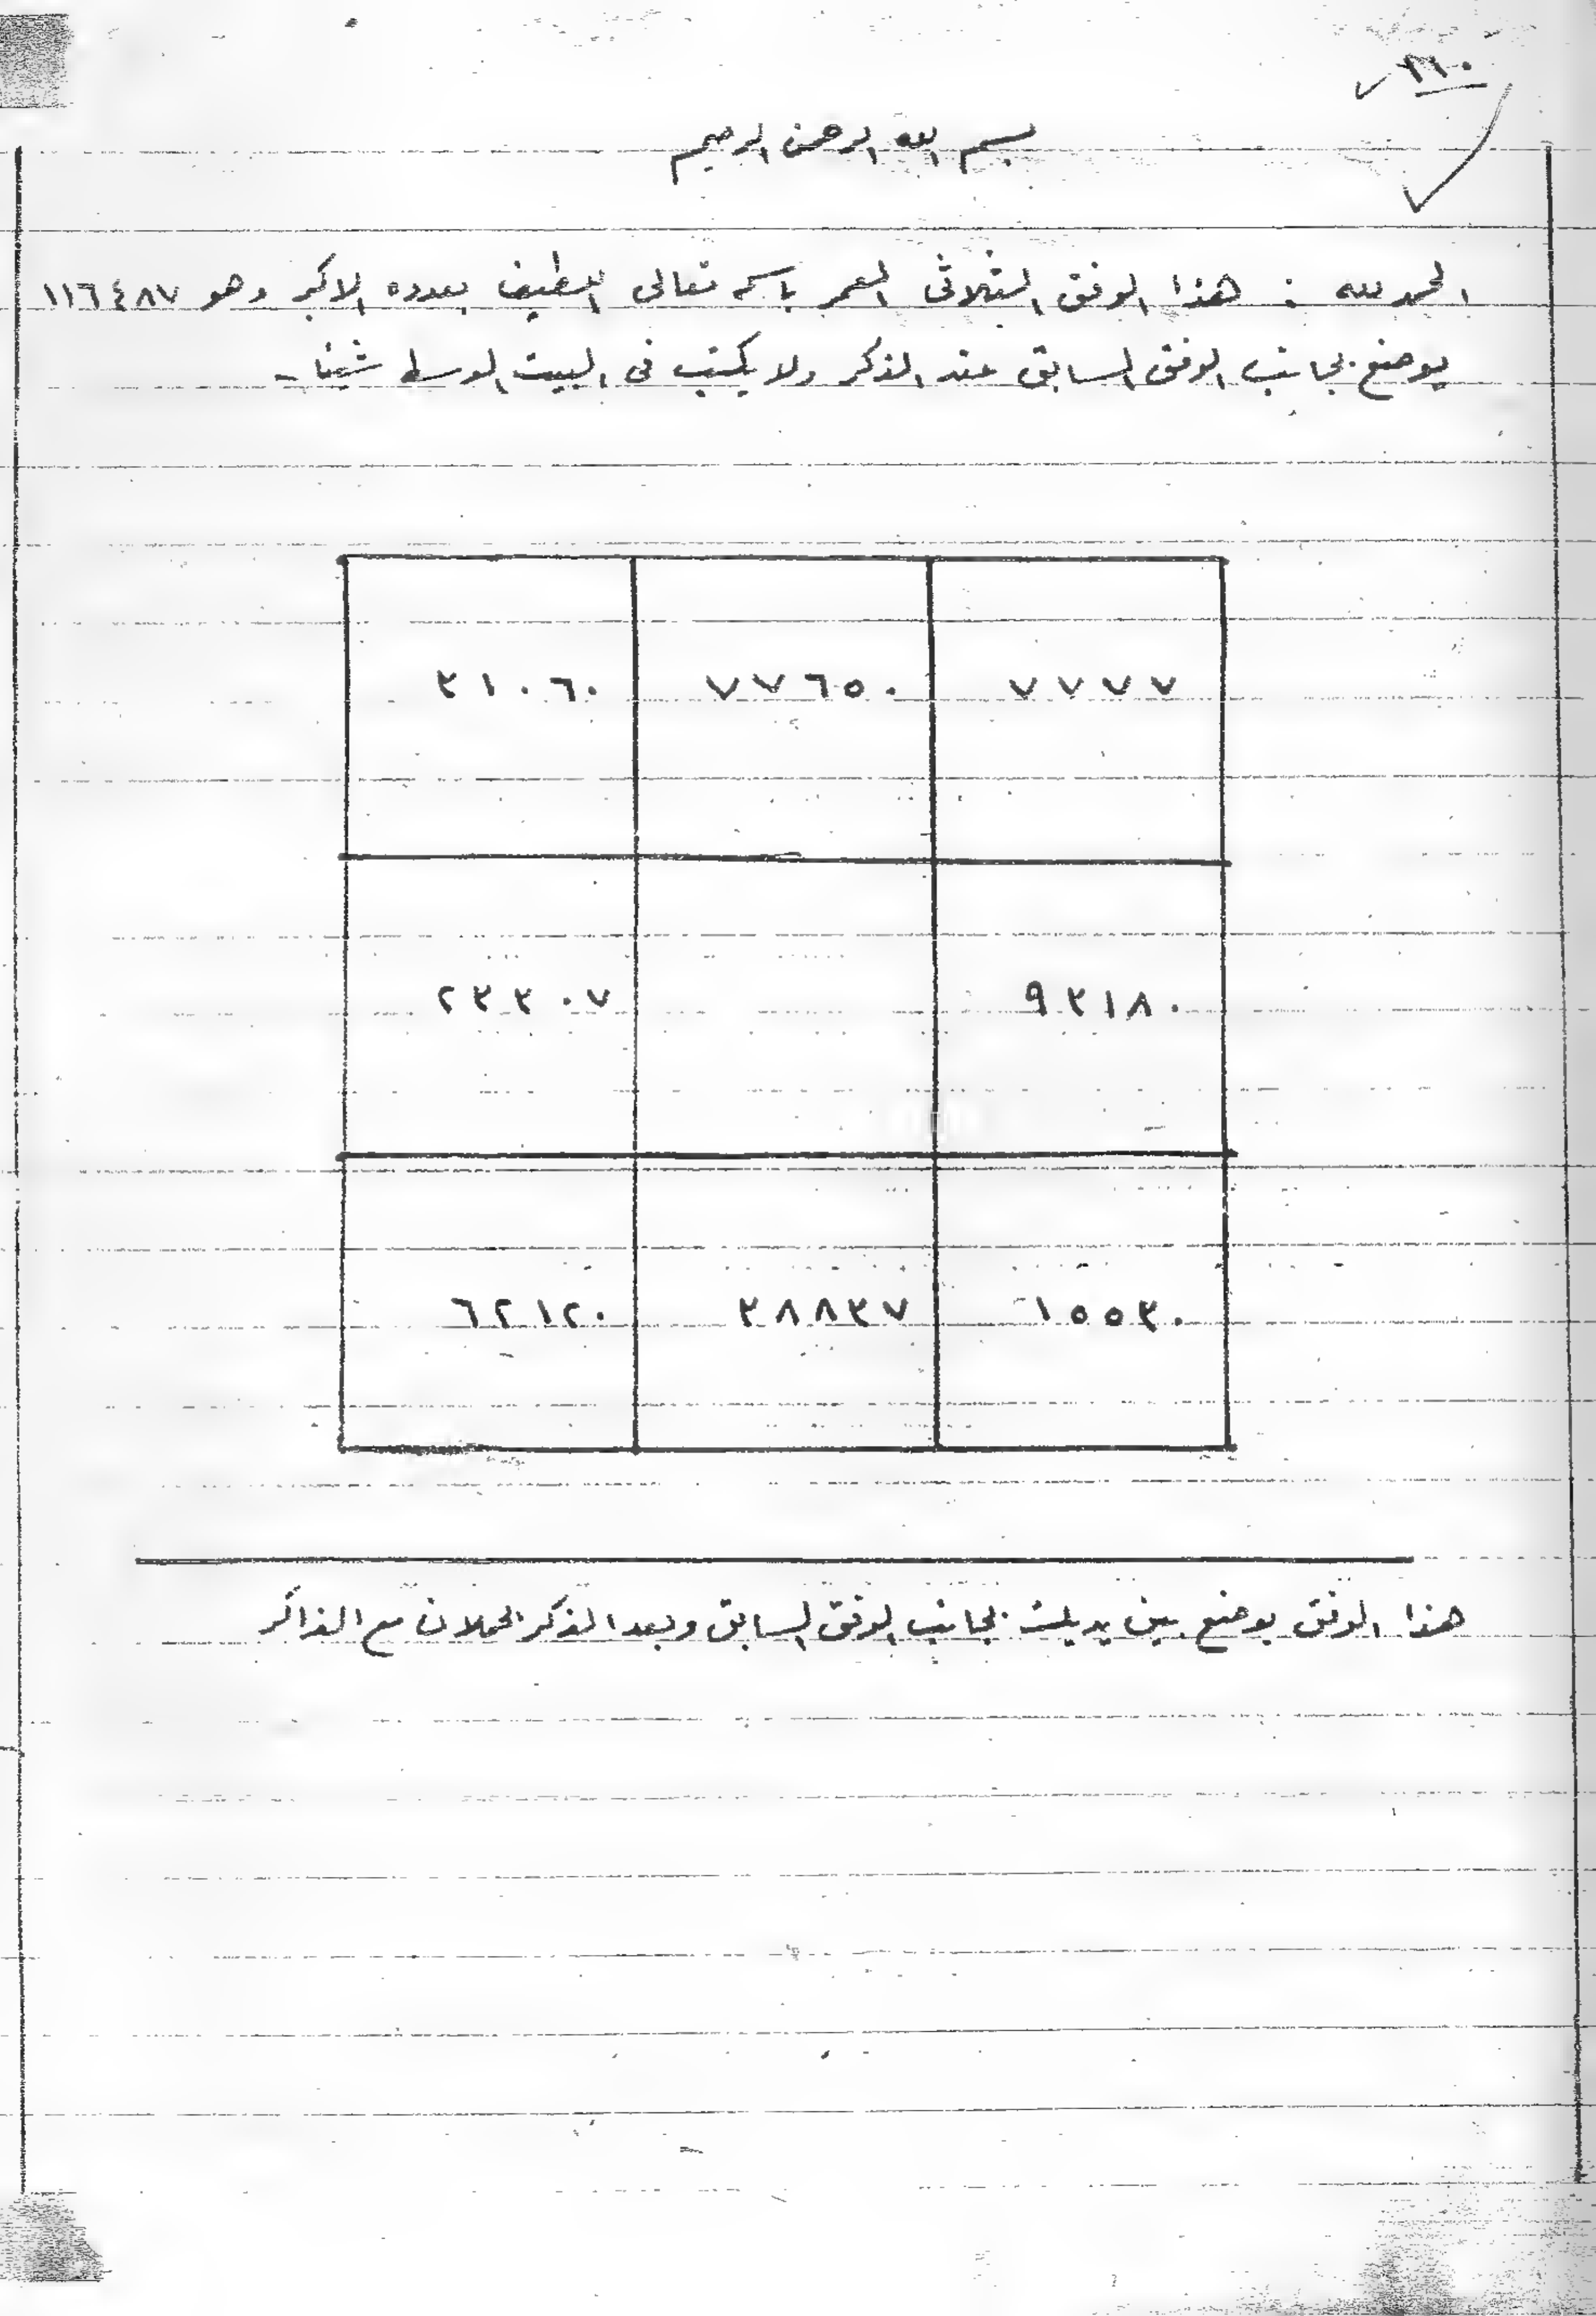 ٧٦٠
بسم الله الرحمن الرحيم
الحمد لله : هذا الوفق الثلاثى المعمر باسمه تعالى اللطيف بعدده الاكبر وهو ١١٦٤٨٧
يوضع بجانب الوفق السابق عند الذكر ولا يكتب فى البيت الوسط شيئا -
٧٧٧٧ ٧٧٦٥٠ ٣١٠٦٠
٩٣١٨٠ ٢٣٣٠٧
١٥٥٣٠ ٣٨٨٣٧ ٦٢١٢٠
هذا الوفق يوضع بين يديك بجانب الوفق السابق وبعد الذكر يحملان مع الذاكر